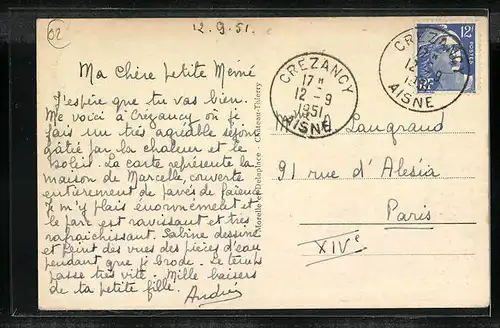 02
12.9.51.
Ma Chère petite Mémé
J'espère que tu vas bien.
Me voici à Crézancy où je
fais un très agréable séjour
gâtée par la chaleur et le
soleil. La carte représente la
maison de Marcelle, couverte
entièrement de pavés de faïence
Je m'y plais énormément et
le parc est ravissant et très
rafraichissant. Sabine dessine
et peint des vues des pièces d'eau
pendant que je brode. Le temps
passe très vite. Mille baisers
de ta petite fille.
Andrée
Morelle et Delaplace - Château-Thierry
CREZANCY
17 H
12 - 9
1951
AISNE
12F
POSTES
CREZANCY
12 - 9
AISNE
Langrand
91 rue d'Alésia
Paris
XIVe